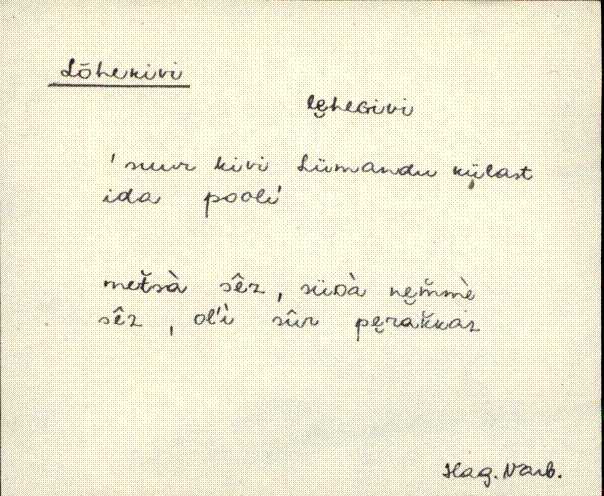 Lõhekivi
lęheGivi
'suur kivi Lümandu külast
ida pooli'
met̆sà sêz, süᴅà nęm̆mè
sêz, ol'ì sûr pęrak̆kaz
Hag. Varb.